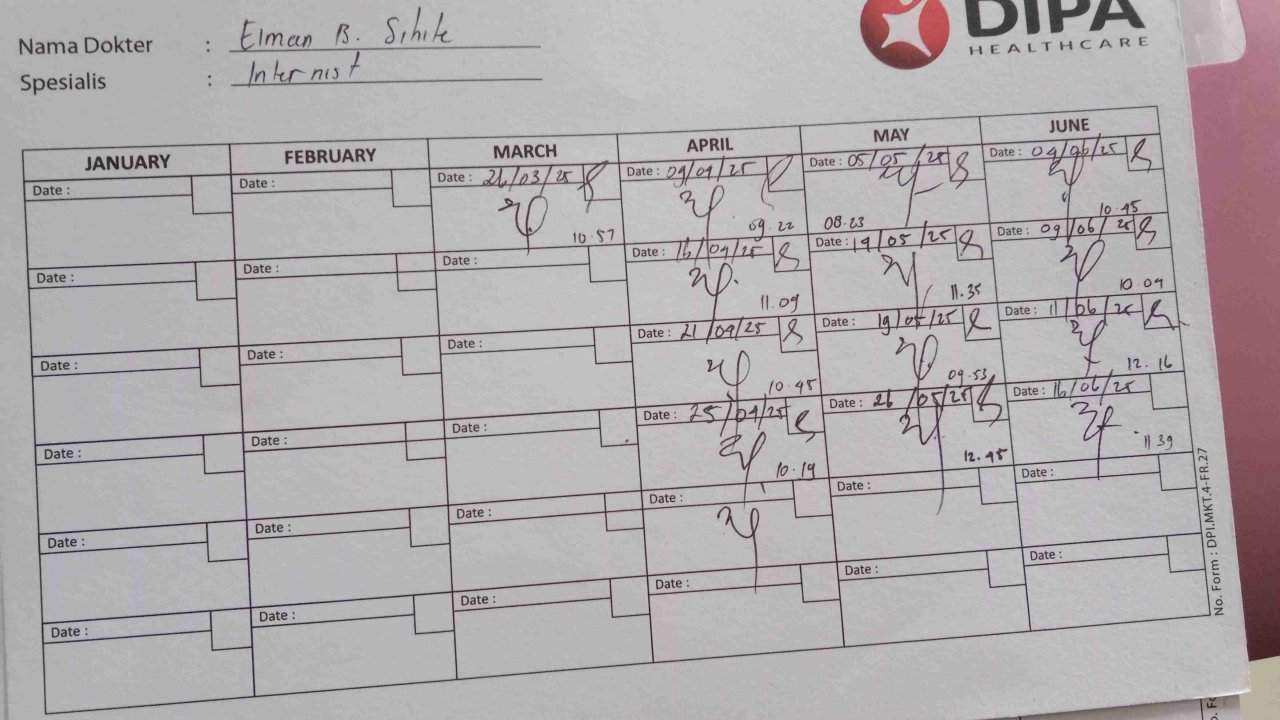 DIPA
HEALTHCARE
Nama Dokter : Elman B. Sihite
Spesialis : Internist
JANUARY FEBRUARY MARCH APRIL MAY JUNE
Date : Date : Date : 26/03/25 Date : 09/04/25 Date : 05/05/25 Date : 04/06/25
10.57 09.22 08.23 10.45
Date : Date : Date : Date : 16/04/25 Date : 19/05/25 Date : 09/06/25
11.09 11.35 10.04
Date : Date : Date : Date : 21/04/25 Date : 19/05/25 Date : 11/06/25
10.45 09.53 12.16
Date : Date : Date : Date : 25/04/25 Date : 26/05/25 Date : 16/06/25
10.19 12.45 11 39
Date : Date : Date : Date : Date : Date :
Date : Date : Date : Date : Date : Date :
No. Form : DPI.MKT.4-FR.27